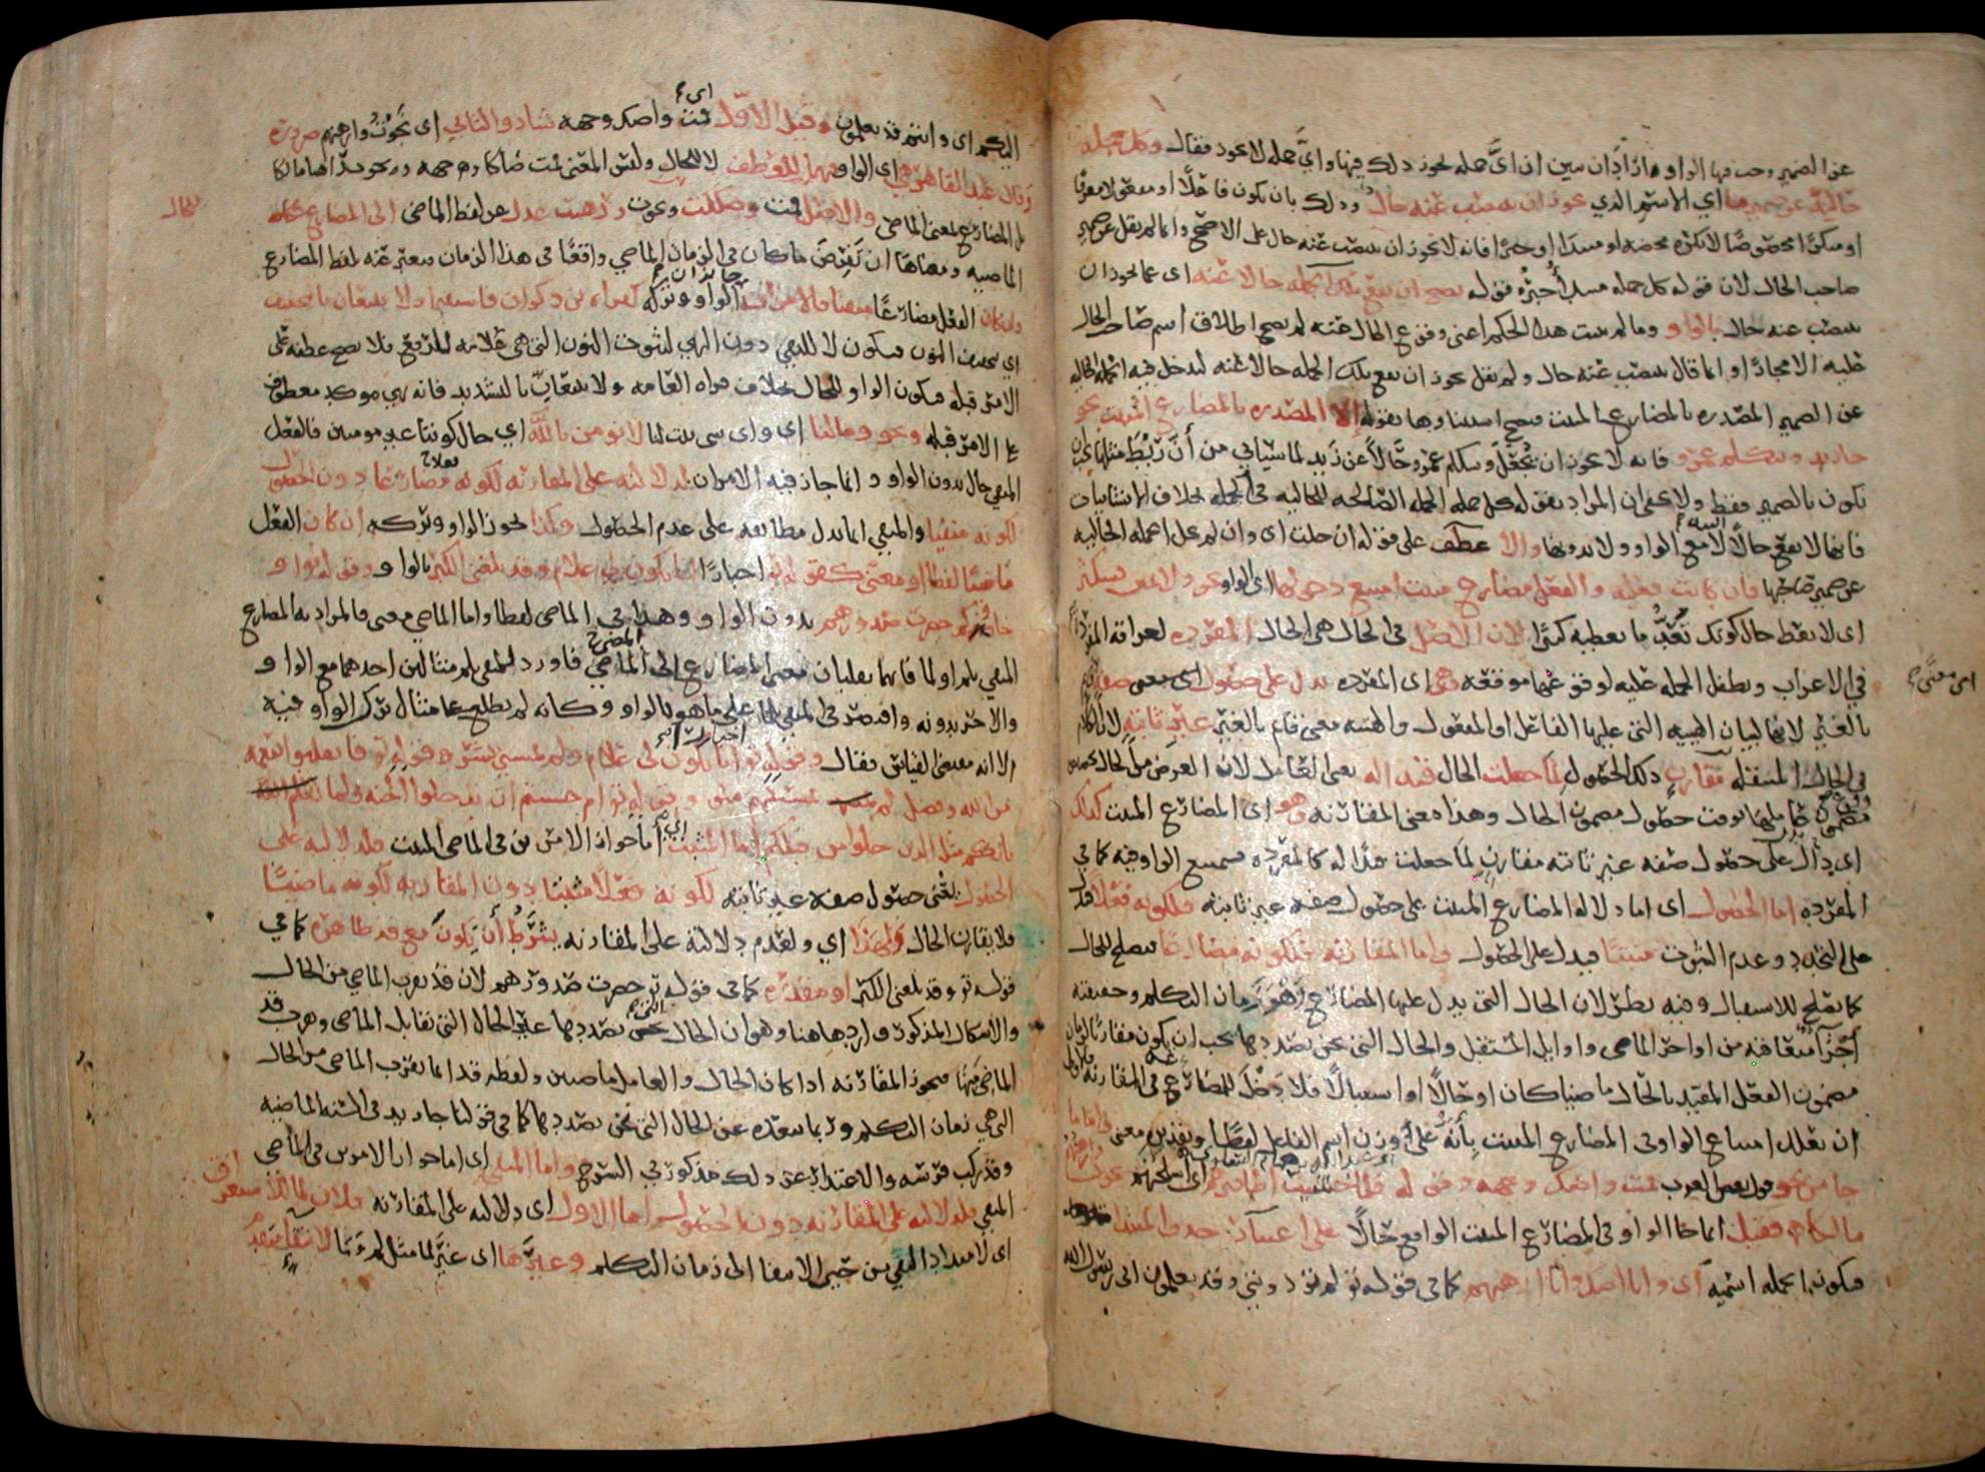 عن الضمير وجب فيها الواو واراد ان يبين ان اىّ جملة يجوز ذلك فيها وايّ جملة لا يجوز فقال وكل جملة
خالية عن ضمير ما اي الاسم الذي يجوز ان ينتصب عنه حال وذلك بان يكون فاعلًا او مفعولا معرفا
او منكرًا مخصوصًا لا نكرة محضة او مبتدا او خبرًا فانه لا يجوز ان ينتصب عنه حال على الاصح وانما لم يقل عن ضمير
صاحب الحال لان قوله كل جملة مبتدا خبره قوله يصح ان تقع تلك الجملة حالا عنه اى عما يجوز ان
ينتصب عنه حال بالواو وما لم يثبت هذا الحكم اعنى وقوع الحال عنه لم يصح اطلاق اسم صاحب الحال
عليه الا مجازا وانما قال ينتصب عنه حال ولم يقل يجوز ان تقع تلك الجملة حالا عنه لتدخل فيه الجملة الخالية
عن الضمير المصدرة بالمضارع المثبت فيصح استثناوها بقوله الا المصدرة بالمضارع المثبت نحو
جا زيد ويتكلم عمرو فانه لا يجوز ان يجعل ويتكلم عمرو حالًا عن زيد لما سياتي من أنّ ربط مثلها يجب ان
تكون بالضمير فقط ولا يخفى ان المراد بقوله كل جملة الجملة الصالحة للحالية في الجملة بخلاف الانشائيات
فانها لا تقع حالًا البتة لا مع الواو ولا بدونها والا عطف على قوله ان خلت اى وان لم تخل الجملة الحالية
عن ضمير صاحبها فان كانت فعلية والفعل مضارع مثبت امتنع دخولها اى الواو نحو ولا تمنن تستكثر
اى لا تعط حال كونك تعدّ ما تعطيه كثيرًا لان الاصل في الحال هى الحال المفردة لعراقة المفرد
في الاعراب وتطفل الجملة عليه لوقوعها موقعه وهى اى المفردة تدل على حصول صفة اى معنى
بالغير لانها لبيان الهيئة التى عليها الفاعل او المفعول والهيئة معنى قائم بالغير غير ثابتة لان الكلام
في الحال المنتقلة مقارن ذلك الحصول لما جعلت الحال قيدا له يعنى العامل لان الغرض من الحال تخصيص
وقوع مضمون عاملها بوقت حصول مضمون الحال وهذا معنى المقارنة وهو اى المضارع المثبت كذلك
اى دالّ على حصول صفة غير ثابتة مقارن لما جعلت قيدا له كالمفردة فيمتنع الواو فيه كما في
المفردة اما الحصول اى اما دلالة المضارع المثبت على حصول صفة غير ثابتة فلكونه فعلًا فدل
على التجدد وعدم الثبوت مثبتًا فيدل على الحصول واما المقارنة فلكونه مضارعا فيصلح للحال
كما يصلح للاستقبال وفيه نظر لان الحال التى يدل عليها المضارع هو زمان التكلم وحقيقته
أجزآ متعاقبة من اواخر الماضى واوايل المستقبل والحال التى نحن بصددها يجب ان يكون مقارنا لزمان
مضمون الفعل المقيد بالحال ماضيا كان او حالًا او استقبالًا فلا دخل للمضارع في المقارنة فالاولى
ان يعلل امتناع الواو فى المضارع المثبت بأنه على وزن اسم الفاعل لفظًا وبتقديره معنى واما ما
جا من نحو قول بعض العرب قمت واصك وجهه وقوله فلما خشيت اظافيرهم اى اسلحتهم نجوت وارهنهم
مالكا فقيل انما جا الواو في المضارع المثبت الواقع حالًا على اعتبار حذف المبتدا
فيكون الجملة اسمية اى وانا اصك وانا ارهنهم كما في قوله تع لم تؤذونني وقد تعلمون انى رسول الله
اى معنى
اليكم اى وانتم قد تعلمون وقيل الاوّل اى قمت واصك وجهه شاذ والثانى اى نجوت وارهنهم ضرورة
وقال عبد القاهر هى اى الواو فيهما للعطف لا للحال وليس المعنى قمت صاكا وجهه ونجوت راهنا مالكا
بل المضارع بمعنى الماضى والاصل قمت وصككت ونجوت ورهنت عدل عن لفظ الماضى الى المضارع حكاية
للحال
الماضية ومعناها ان يفرض ما كان في الزمان الماضي واقعًا في هذا الزمان فيعبر عنه بلفظ المضارع
وان كان الفعل مضارعًا منفيا فالامران جايزان الواو وتركه كقراءة بن ذكوان فاستقيما ولا تتبعان بالتخفيف
اي بتخفيف النون فيكون لا للنفي دون النهي لثبوت النون التى هى علامة الرفع فلا يصح عطفه على
الامر قبله فيكون الواو للحال بخلاف قراة العامة ولا تتبعانّ بالتشديد فانه نهي موكد معطوف
على الامر قبله ونحو ومالنا اى واى شى ثبت لنا لا نومن بالله اي حال كوننا غير مومنين فالفعل
المنفي حال بدون الواو وانما جاز فيه الامران لدلالته على المقارنة لكونه مضارعًا دون الحصول
لكونه منفيا والمنفي انما يدل مطابقة على عدم الحصول وكذا يجوز الواو وتركه ان كان الفعل
ماضيًا لفظا او معنى كقوله تع اخبارًا انى يكون لى غلام وقد بلغنى الكبر بالواو وقوله او
جاءوكم حصرت صدورهم بدون الواو وهذا في الماضى لفظا واما الماضى معنى فالمراد به المضارع
المنفي بلم او لما فانهما يقلبان معنى المضارع الى الماضي فاورد للمنفي بلم مثالين احدهما مع الواو
والاخر بدونه واقتصر في المنفي بلما على ما هو بالواو وكانه لم يطلع على مثال ترك الواو فيه
الا انه مقتضى القياس فقال وقوله تع انى يكون لى غلام ولم يمسسني بشر وقوله تع فانقلبوا بنعمة
من الله وفضل لم يمسسهم سوء وقوله تع ام حسبتم ان تدخلوا الجنة ولما
ياتكم مثل الذين خلوا من قبلكم اما المثبت اى اما جواز الامرين في الماضى المثبت فلدلالته على
الحصول يعنى حصول صفة غير ثابتة لكونه فعلًا مثبتا دون المقارنة لكونه ماضيًا
فلا يقارن الحال ولهذا اي ولعدم دلالته على المقارنة يشترط أن يكون مع قد ظاهرة كما في
قوله تع وقد بلغنى الكبر او مقدرة كما فى قوله تع حصرت صدورهم لان قد يقرب الماضي من الحال
والاشكال المذكور وارد هاهنا وهو ان الحال التى نحن بصددها غير الحال التى تقابل الماضى ويقرب قد
الماضى منها فيجوز المقارنة اذا كان الحال والعامل ماضيين ولفظه قد انما يقرب الماضى من الحال
التى هي زمان التكلم وربما يبعده عن الحال التى نحن بصددها كما في قولنا جا زيد في السنة الماضية
وقد ركب فرسه والاعتذار عن ذلك مذكور في الشرح واما المنفي اى اما جواز الامرين فى الماضي
المنفي فلدلالته على المقارنة دون الحصول اما الاول اى دلالته على المقارنة فلان لما للاستغراق
اى لامتداد النفي من حين الانتفا الى زمان التكلم وغيرها اى غير لما مثل لم وما لانتفا متقدم